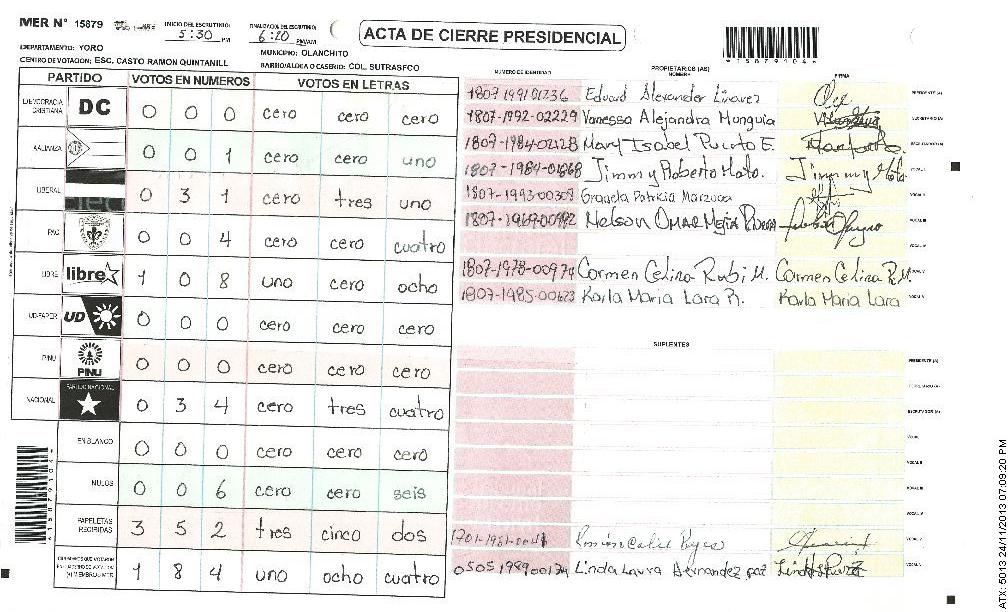 MER N° 15879 INICIO DEL ESCRUTINIO: 5:30 PM FINALIZACION DEL ESCRUTINIO: 6:20 PM/AM
ACTA DE CIERRE PRESIDENCIAL
DEPARTAMENTO: YORO MUNICIPIO: OLANCHITO
CENTRO DE VOTACION: ESC. CASTO RAMON QUINTANILL BARRIO/ALDEA O CASERIO: COL. SUTRASFCO
PARTIDO VOTOS EN NUMEROS VOTOS EN LETRAS
DEMOCRACIA CRISTIANA DC 0 0 0 cero cero cero
AALIANZA 0 0 1 cero cero uno
LIBERAL 0 3 1 cero tres uno
PAC 0 0 4 cero cero cuatro
LIBRE libre 1 0 8 uno cero ocho
UD-FAPER UD 0 0 0 cero cero cero
PINU PINU 0 0 0 cero cero cero
NACIONAL PARTIDO NACIONAL 0 3 4 cero tres cuatro
EN BLANCO 0 0 0 cero cero cero
NULOS 0 0 6 cero cero seis
PAPELETAS RECIBIDAS 3 5 2 tres cinco dos
1 8 4 uno ocho cuatro
NUMERO DE IDENTIDAD PROPIETARIOS (AS) NOMBRE FIRMA
Eduard Alexander Linarez PRESIDENTE (A)
1807-1992-02229 Vanessa Alejandra Munguia SECRETARIO (A)
1807-1984-02128 Mary Isabel Puerto E. ESCRUTADOR (A)
Jimmy Roberto Mato. Jimmy Mato. VOCAL I
Graciela Patricia Marzuca VOCAL II
Nelson Omar Mejia VOCAL III
VOCAL IV
1807-1978-00974 Carmen Celina Rubi M. Carmen Celina R.M. VOCAL V
1807-1985-00623 Karla Maria Lara R. Karla Maria Lara
SUPLENTES
PRESIDENTE (A)
SECRETARIO (A)
ESCRUTADOR (A)
VOCAL I
VOCAL II
VOCAL III
VOCAL IV
Reyes VOCAL V
Linda Laura Hernandez paz
*15879104*
ATX: 5013 24/11/2013 07:09:20 PM